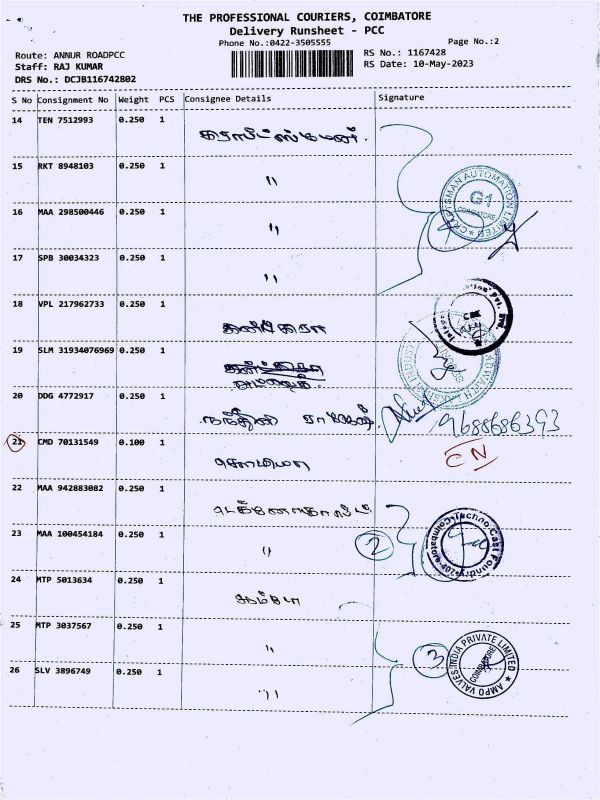 THE PROFESSIONAL COURIERS, COIMBATORE
Delivery Runsheet - PCC
Phone No.:0422-3505555
Page No.:2
Route: ANNUR ROADPCC
RS No.: 1167428
Staff: RAJ KUMAR
RS Date: 10-May-2023
DRS No.: DCJB116742802
S No Consignment No Weight PCS Consignee Details Signature
14 TEN 7512993 0.250 1
15 RKT 8948103 0.250 1 "
16 MAA 298500446 0.250 1 "
CRAFTSMAN AUTOMATION LIMITED
G1
COIMBATORE
17 SPB 30034323 0.250 1 "
18 VPL 217962733 0.250 1
19 SLM 31934076969 0.250 1
20 DDG 4772917 0.250 1 நந்தினி
9688686393
21 CMD 70131549 0.100 1
CN
22 MAA 942883082 0.250 1
23 MAA 100454184 0.250 1 "
2
24 MTP 5013634 0.250 1
25 MTP 3037567 0.250 1 "
3
AMPO VALVES INDIA PRIVATE LIMITED
COIMBATORE
26 SLV 3896749 0.250 1 "